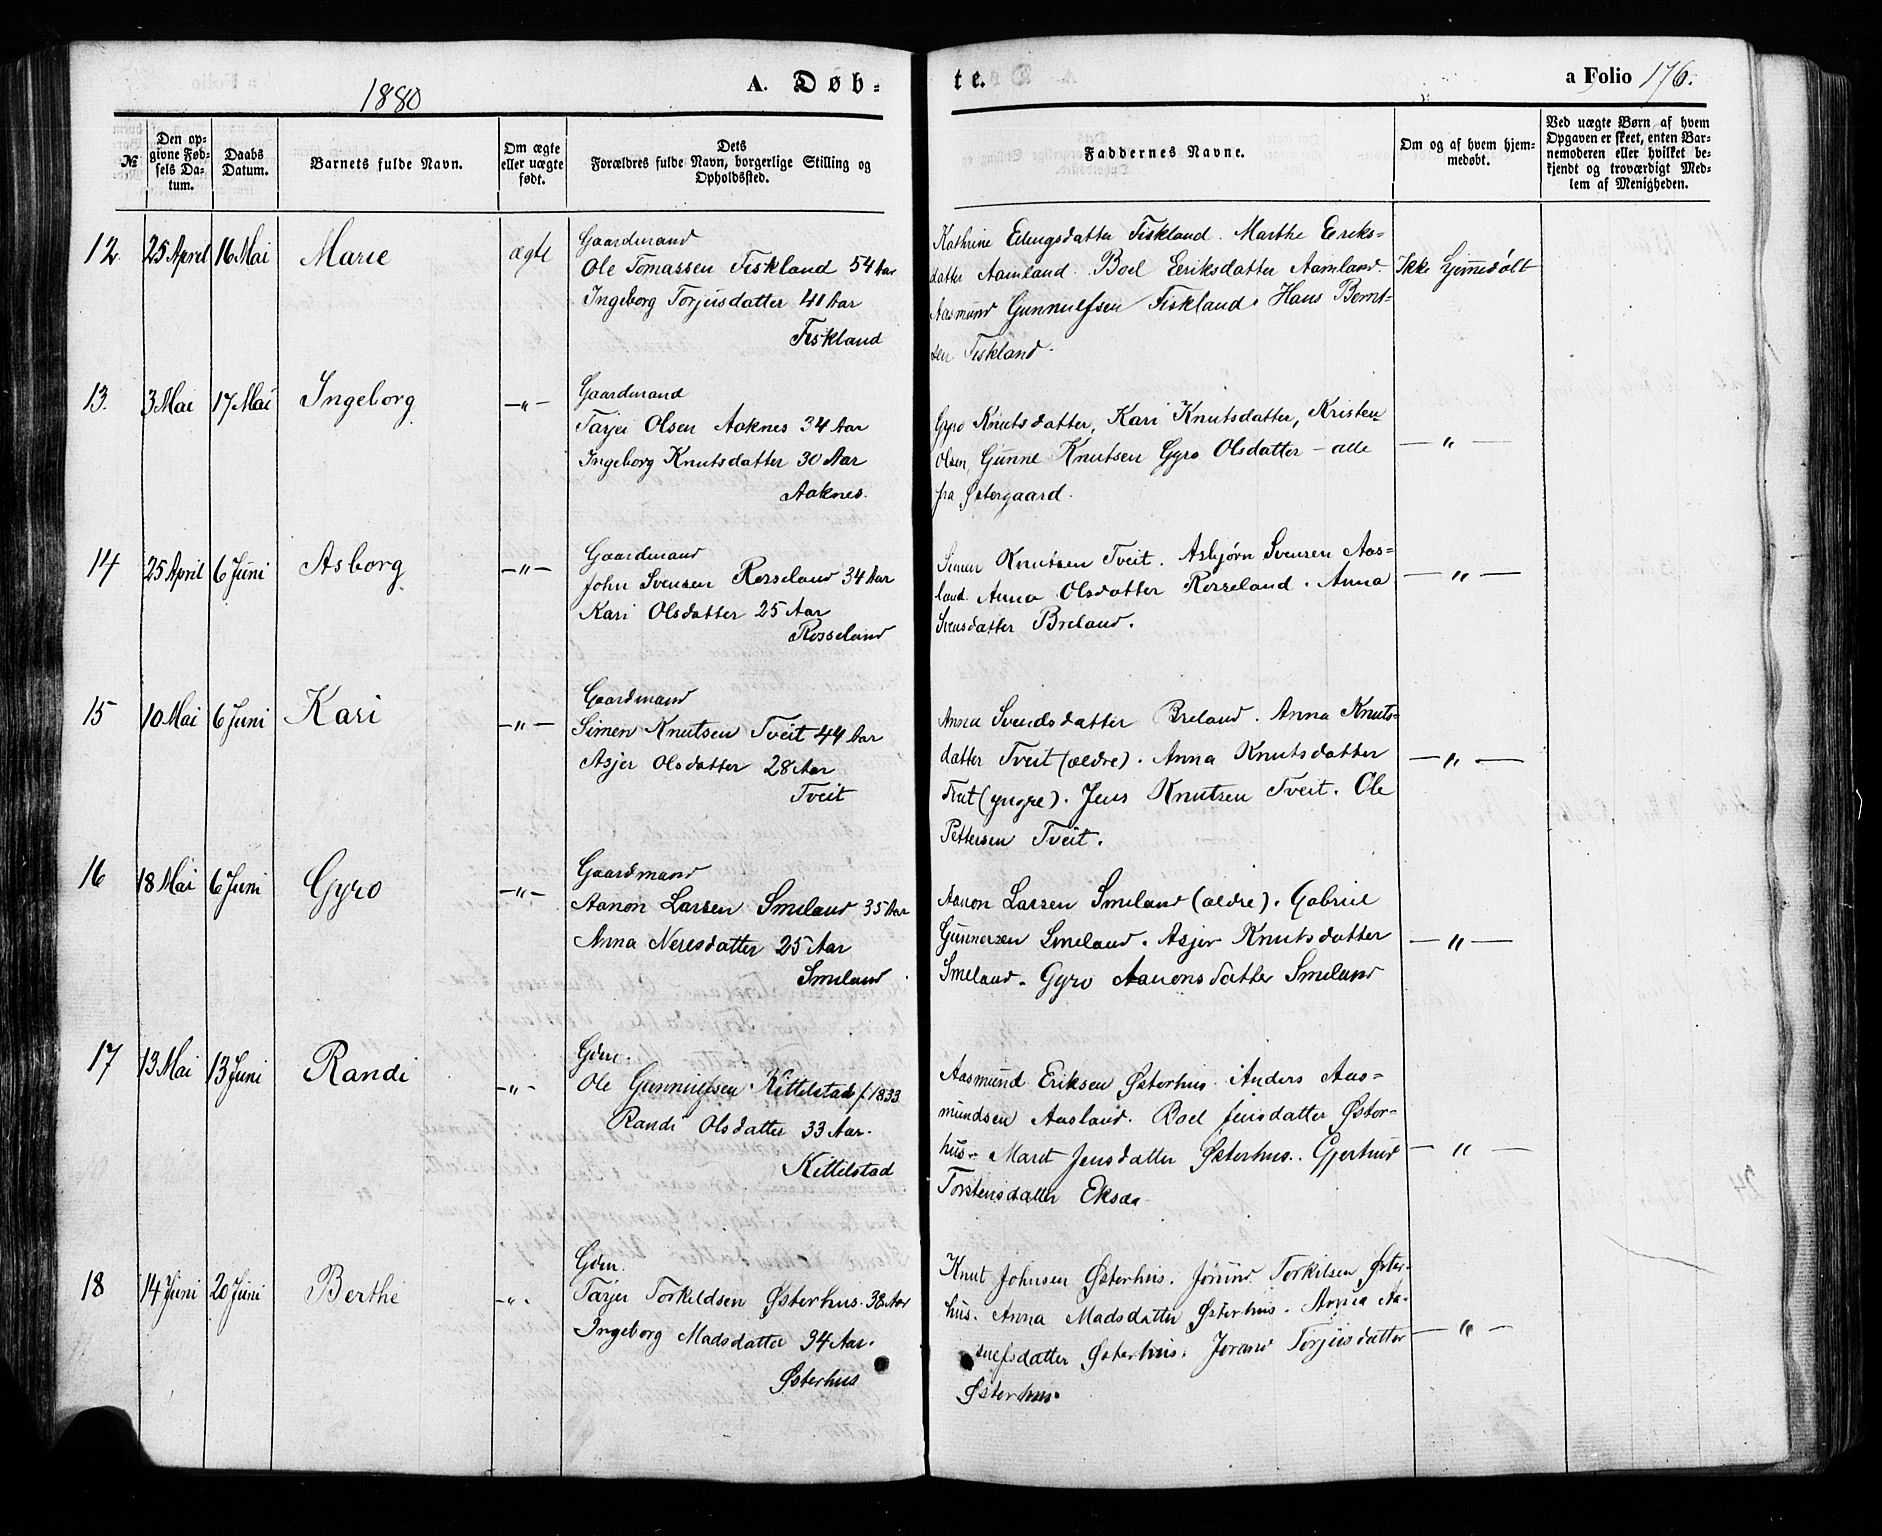 1880
A. Døb-
te.
a Folio 176.
№
Den opgivne Fødsels Datum.
Daabs Datum.
Barnets fulde Navn.
Om ægte eller uægte født.
Dets Forældres fulde Navn, borgerlige Stilling og Opholdssted.
Faddernes Navne.
Om og af hvem hjemmedøbt.
Ved uægte Børn af hvem Opgaven er skeet, enten Barnemoderen eller hvilket bekjendt og troværdigt Medlem af Menigheden.
12. 25 April 16 Mai Marie ægte
Gaardmand
Ole Tomassen Fiskland 54 Aar
Ingeborg Torjusdatter 41 Aar
Fiskland
Kathrine Ellingsdatter Fiskland. Marthe Eriks-
datter Aamland. Boel Eeriksdatter Aamland.
Aasmund Gunnulfsen Fiskland. Hans Bernt-
sen Fiskland.
Ikke hjemmedøbt
13. 3 Mai 17 Mai Ingeborg —"—
Gaardmand
Tarjei Olsen Aaknes 34 Aar
Ingeborg Knutsdatter 30 Aar
Aaknes.
Gyro Knutsdatter, Kari Knutsdatter, Kristen
Olsen, Gunne Knutsen Gyro Olsdatter – alle
fra Østergaard.
—"—
14 25 April 6 Juni Asborg —"—
Gaardmand
John Svensen Rosseland 34 Aar
Kari Olsdatter 25 Aar
Rosseland
Simen Knutsen Tveit. Asbjørn Svensen Aas-
land. Anna Olsdatter Rosseland. Anna
Svensdatter Breland.
—"—
15 10 Mai 6 Juni Kari —"—
Gaardmand
Simen Knutsen Tveit 44 Aar
Asjer Olsdatter 28 Aar
Tveit
Anna Svendsdatter Breland. Anna Knuts-
datter Tveit (ældre). Anna Knutsdatter
Tveit (yngre). Jens Knutsen Tveit. Ole
Pettersen Tveit.
—"—
16 18 Mai 6 Juni Gyro —"—
Gaardmand
Aanon Larsen Smeland 35 Aar
Anna Neresdatter 25 Aar
Smeland
Aanon Larsen Smeland (ældre). Gabriel
Gunnarsen Smeland. Asjer Knutsdatter
Smeland. Gyro Aanonsdatter Smeland
—"—
17 13 Mai 13 Juni Randi —"—
Gdm.
Ole Gunnulfsen Kittelstad f. 1833
Randi Olsdatter 33 Aar.
Kittelstad
Aasmund Eriksen Østerhus. Anders Aas-
mundsen Aasland. Boel Jensdatter Øster-
hus. Maret Jensdatter Østerhus. Gjertrud
Torstensdatter Eksaa
—"—
18 14 Juni 20 Juni Berthe —"—
Gdm.
Tarjei Torkildsen Østerhus. 38 Aar
Ingeborg Madsdatter 34 Aar.
Østerhus
Knut Johnsen Østerhus. Jørund Torkilsen Øster-
hus. Anna Madsdatter Østerhus. Anna Aa-
nefsdatter Østerhus. Jorand Torjusdatter
Østerhus.
—"—